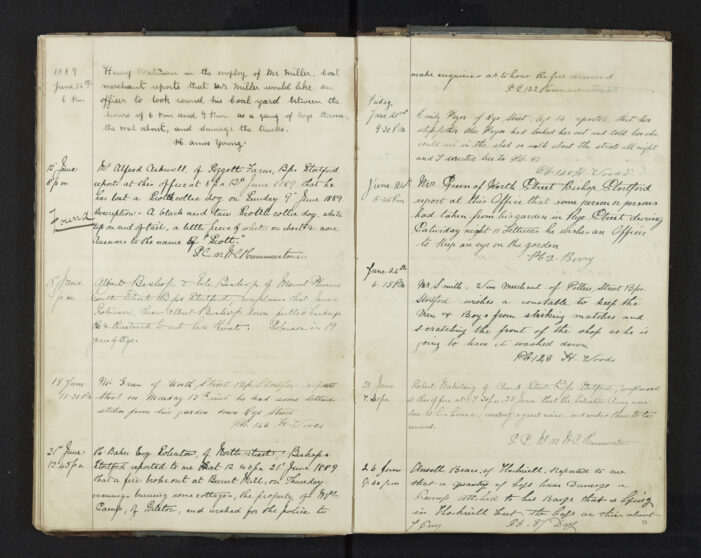 1889
June 12th
6 Pm
Henry Wateman in the employ of Mr Miller, Coal
merchant reports that Mr Miller would like an
officer to look round his Coal yard between the
hours of 6 Pm and 9 Pm as a gang of boys throw
the coal about, and damage the trucks.
Amos Young.
13 June
8 pm
Found
Mr Alfred Askwell, of Piggott Bps Stortford
report at this office at 8 pm 13th June 1889 that he
has lost a Scotch collie dog on Sunday 9th June 1889
description - A black and tan Scotch collie dog, white
tip on end of tail, a little piece of white on chest & nose
Answers to the name of "Scott"
P.C. 132 W.C.
18 June
pm
Albert Bishop & Bishop of Mount Pleasant
South Street Bps Stortford, complains that
Robinson, threw Albert Bishop down
& threatened to cut his throat. Robinson is 19
years of age.
19 June
11.30
Mr Green of North Street Bp Stortford reports
that on Monday 17th inst he had some lettuce
stolen from his garden down Rye Street
Pc. 146 H Woods
21st June
12.45 pm
Baker Esqr Solicitor, of North Street, Bishops
Stortford reported to me that at 12.45 pm 21st June 1889
that a fire broke out at Burnt Mill, on Thursday
evening burning some cottages, the property of Mrs
Camps, of and wished for the police to
make enquiries as to how the fire occurred
P.C. 132
Friday
June 21st
9.31 Pm
Emily Pryor of Rye Street. Age 14 reported that her
stepfather Alec Pryor had locked her out and told her she
could in the shed or walk about the street all night
and I directed her to
Pc. 146 H. Woods
June 24th
5.45 Pm
Messr Green of North Street Bishop Stortford
report at this Office that some person or persons
had taken from his garden in Rye Street during
Saturday night 11 lettuces he wishes an Officer
to keep an eye on the garden
PC 2 Berry
June 24th
6.15 Pm
Mr. Smith. Wine Merchant of Potters Street Bps.
Stortford wishes a constable to keep the
Men & Boys from striking matches and
scratching the front of the shop as he is
going to have it washed down.
Pc 126 H Woods
25 June
7.30 pm
Robert of Church Street, Bps Stortford, complained
at this office at 7.30 pm 25 June, that the Salvation Army came
close to his house, creating a great noise, and wishes them to be
moved.
P.C. 132 W.C.
26 June
7.30 pm
of Hockerill, Reported to me
that a quantity of Caps have Damage a
Pump attached to his Barge that is lying
in Hockerill